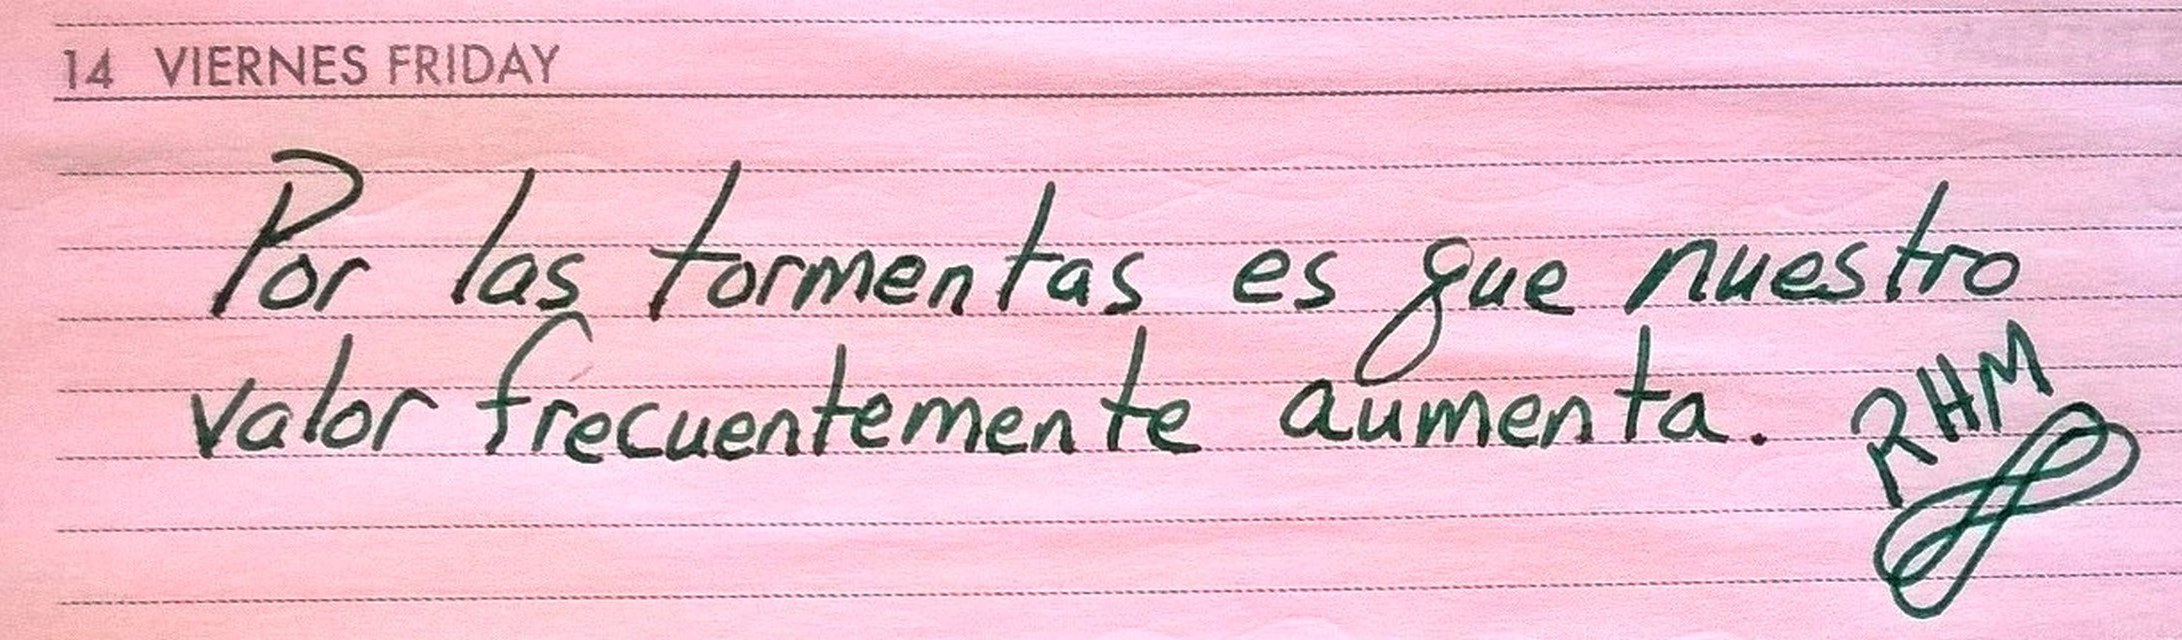 14 VIERNES FRIDAY
Por las tormentas es que nuestro
valor frecuentemente aumenta.
RHM